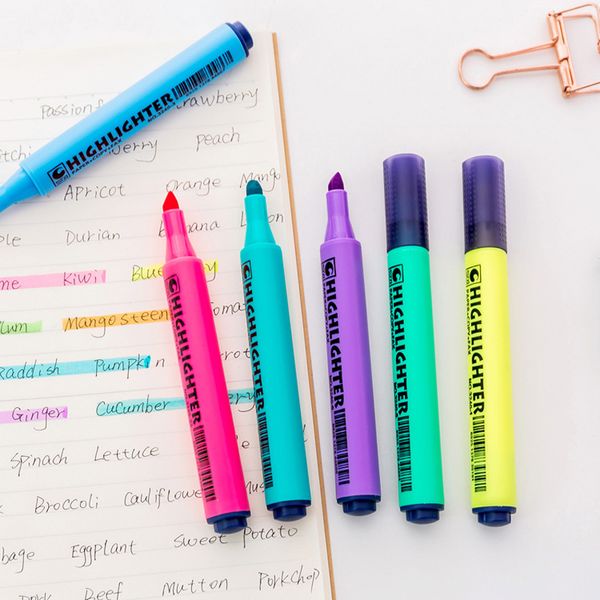 Passionf rawberry
peach
Apricot orange Mango
Durian banana Lemon
me Kiwi Blue
lum Mangosteen
raddish Pumpk
Ginger Cucumber
Spinach Lettuce
Broccoli Cauliflower
bage Eggplant Sweet Potato
Beef Mutton Porkchop
C HIGHLIGHTER
C HIGHLIGHTER
C HIGHLIGHTER
C HIGHLIGHTER
C HIGHLIGHTER
HIGHLIGHTER